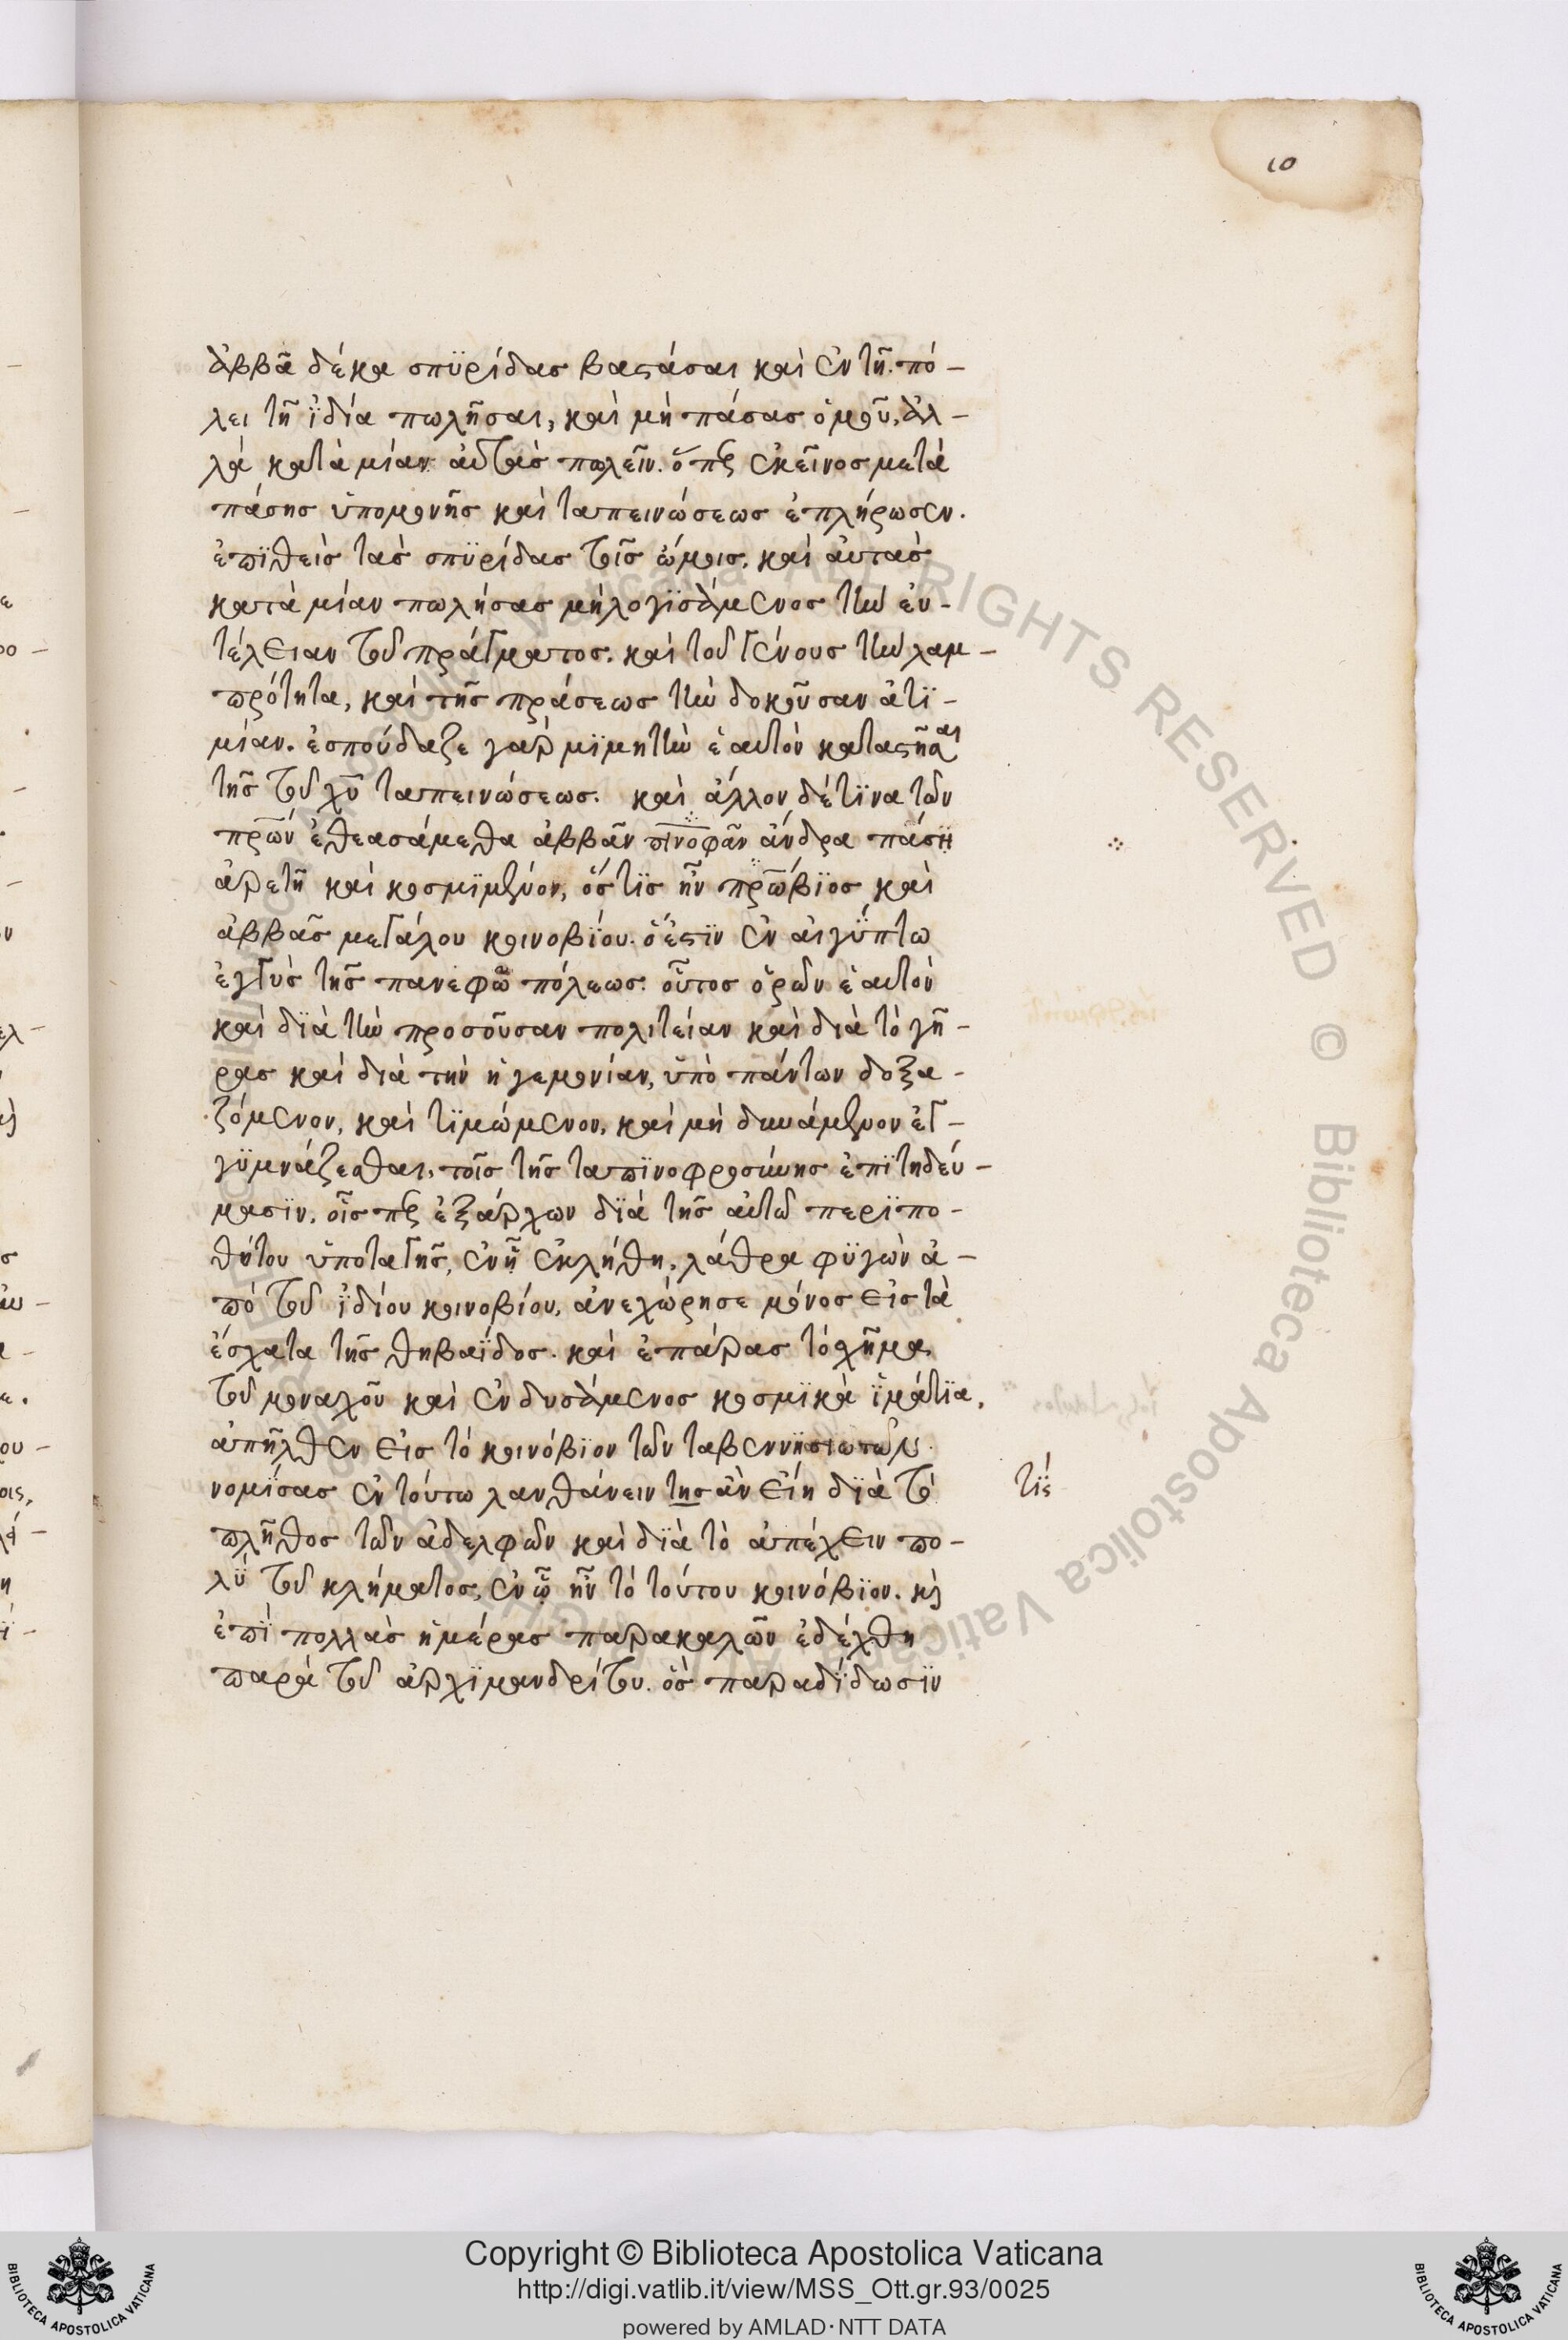 10
ἀββᾶ δέκα σπϋρίδας βαστάσαι καὶ ἐν τῆ πό-
λει τῆ ϊδία πωλῆσαι, καὶ μὴ πάσας ὁμοῦ, ἀλ-
λὰ κατὰ μίαν αὐτὰς πωλεῖν. ὅπερ ἐκεῖνος μετὰ
πάσης ὑπομονῆς καὶ ταπεινώσεως ἐπλήρωσεν.
ἐπϊθεὶς τὰς σπϋρίδας τοῖς ὤμοις, καὶ αὐτὰς
κατὰ μίαν πωλήσας μὴ λογϊσάμενος τὴν εὐ-
τέλειαν τοῦ πράγματος, καὶ τοῦ γένους τὴν λαμ-
πρότητα, καὶ τῆς πράσεως τὴν δοκοῦσαν ἀτϊ-
μίαν. ἐσπούδαζε γὰρ μϊμητὴν ἑαυτὸν καταστῆσαι
τῆς τοῦ χῦ ταπεινώσεως. καὶ ἄλλον δέ τϊνα τῶν
πρων ἐθεασάμεθα ἀββᾶν πινοφᾶν ἄνδρα πάση
ἀρετῆ καὶ κοσμϊμένον, ὅστϊς ἦν πρωβϊος καὶ
ἀββᾶς μεγάλου κοινοβΐου. ὅ ἐστϊν ἐν αἰγϋπτω
ἐγγὺς τῆς πανεφῶ πόλεως. οὗτος ὁρῶν ἑαυτὸν
καὶ δϊὰ τὴν προσοῦσαν πολιτείαν καὶ διὰ τὸ γῆ-
ρας καὶ διὰ τὴν ἡγεμονίαν, ὑπὸ πάντων δοξα-
ζόμενον, καὶ τϊμώμενον, καὶ μὴ δυνάμενον ἐγ-
γϋμνάζεσθαι, τοῖς τῆς ταπϊνοφροσύνης ἐπϊτηδεύ-
μασϊν, οἷσπερ ἐξάρχων δϊὰ τῆς αὐτῶ περϊπο-
θήτου ὑποταγῆς, ἐν ἧ ἐκλήθη, λάθρα φϋγὼν ἀ-
πὸ τοῦ ϊδίου κοινοβίου, ἀνεχώρησε μόνος εἰς τὰ
ἔσχατα τῆς θηβαΐδος. καὶ ἐπάρας τὸ σχῆμα
τοῦ μοναχοῦ καὶ ἐνδυσάμενος κοσμϊκὰ ϊμάτϊα,
ἀπῆλθεν εἰς τὸ κοινόβϊον τῶν ταβεννϊσιωτῶν.
νομϊσας ἐν τούτω λανθάνειν τῆς ἂν εἴη δϊὰ τὸ
τΐς
πλῆθος τῶν ἀδελφῶν καὶ δϊὰ τὸ ἀπέχειν πο-
λϋ τοῦ κλήματος, ἐν ὧ ἦν τὸ τούτου κοινόβϊον. κὶ
ἐπὶ πολλὰς ἡμέρας παρακαλῶν ἐδέχθη
παρὰ τοῦ ἀρχϊμανδρίτου. ὃς παραδΐδωσϊν
Copyright © Biblioteca Apostolica Vaticana
http://digi.vatlib.it/view/MSS_Ott.gr.93/0025
powered by AMLAD·NTT DATA